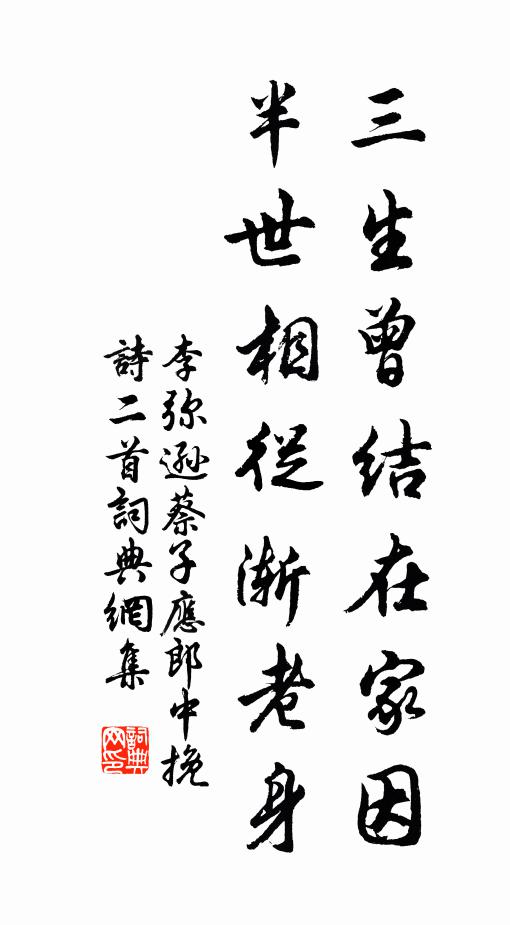 三生曾结在家因
半世相從渐老身
李弥遜蔡子應郎中挽
詩二首詞典網集
詞典网印